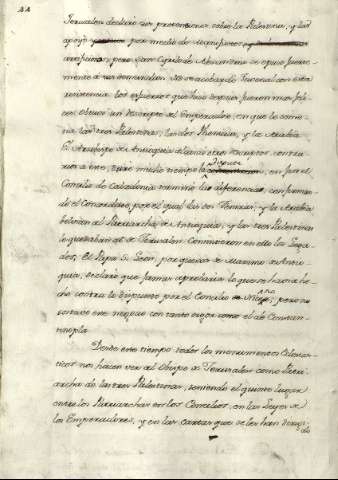 Jerusalen declaró sus pretensiones sobre la Palestina, y las
apoyó por medio de
pero San Cirilo de Alexandria se opuso fuerte-
mente á su demanda. No se acobardó Juvenal con esta
resistencia los esfuerzos que hizo despues fueron mas feli-
ces: obtuvo un rescripto del Emperador, en que le some-
tia las tres Palestinas, las dos Phenicias, y la Arabia
El de Antioquia alcanzó otro rescripto contra-
rio á este, duró mucho tiempo la disputa en fin el
Concilio de Calcedonia terminó las diferencias, confirman-
do el Concordato, por el qual las dos Fenicias, y la Arabia
bolvian al Patriarcha de Antioquia, y las tres Palestinas
le quedaban al de Jerusalen. Convinieron en ello los Lega-
dos. El Papa S. Leon, por quexas de Maximo de Antio-
quia, declaró que jamas aprobaria lo que se havia he-
cho contra lo dispuesto por el Concilio Niceño; pero no
sostuvo este negocio con tanto vigor como el de Constan-
tinopla
Desde este tiempo todos los monumentos Eclesias-
ticos nos hacen ver al Obispo de Jerusalen como Patri-
archa de las tres Palestinas, teniendo el quinto lugar
entre los Patriarchas en los Concilios, en las Leyes de
los Emperadores, y en las cartas que se les han dirigi-
do